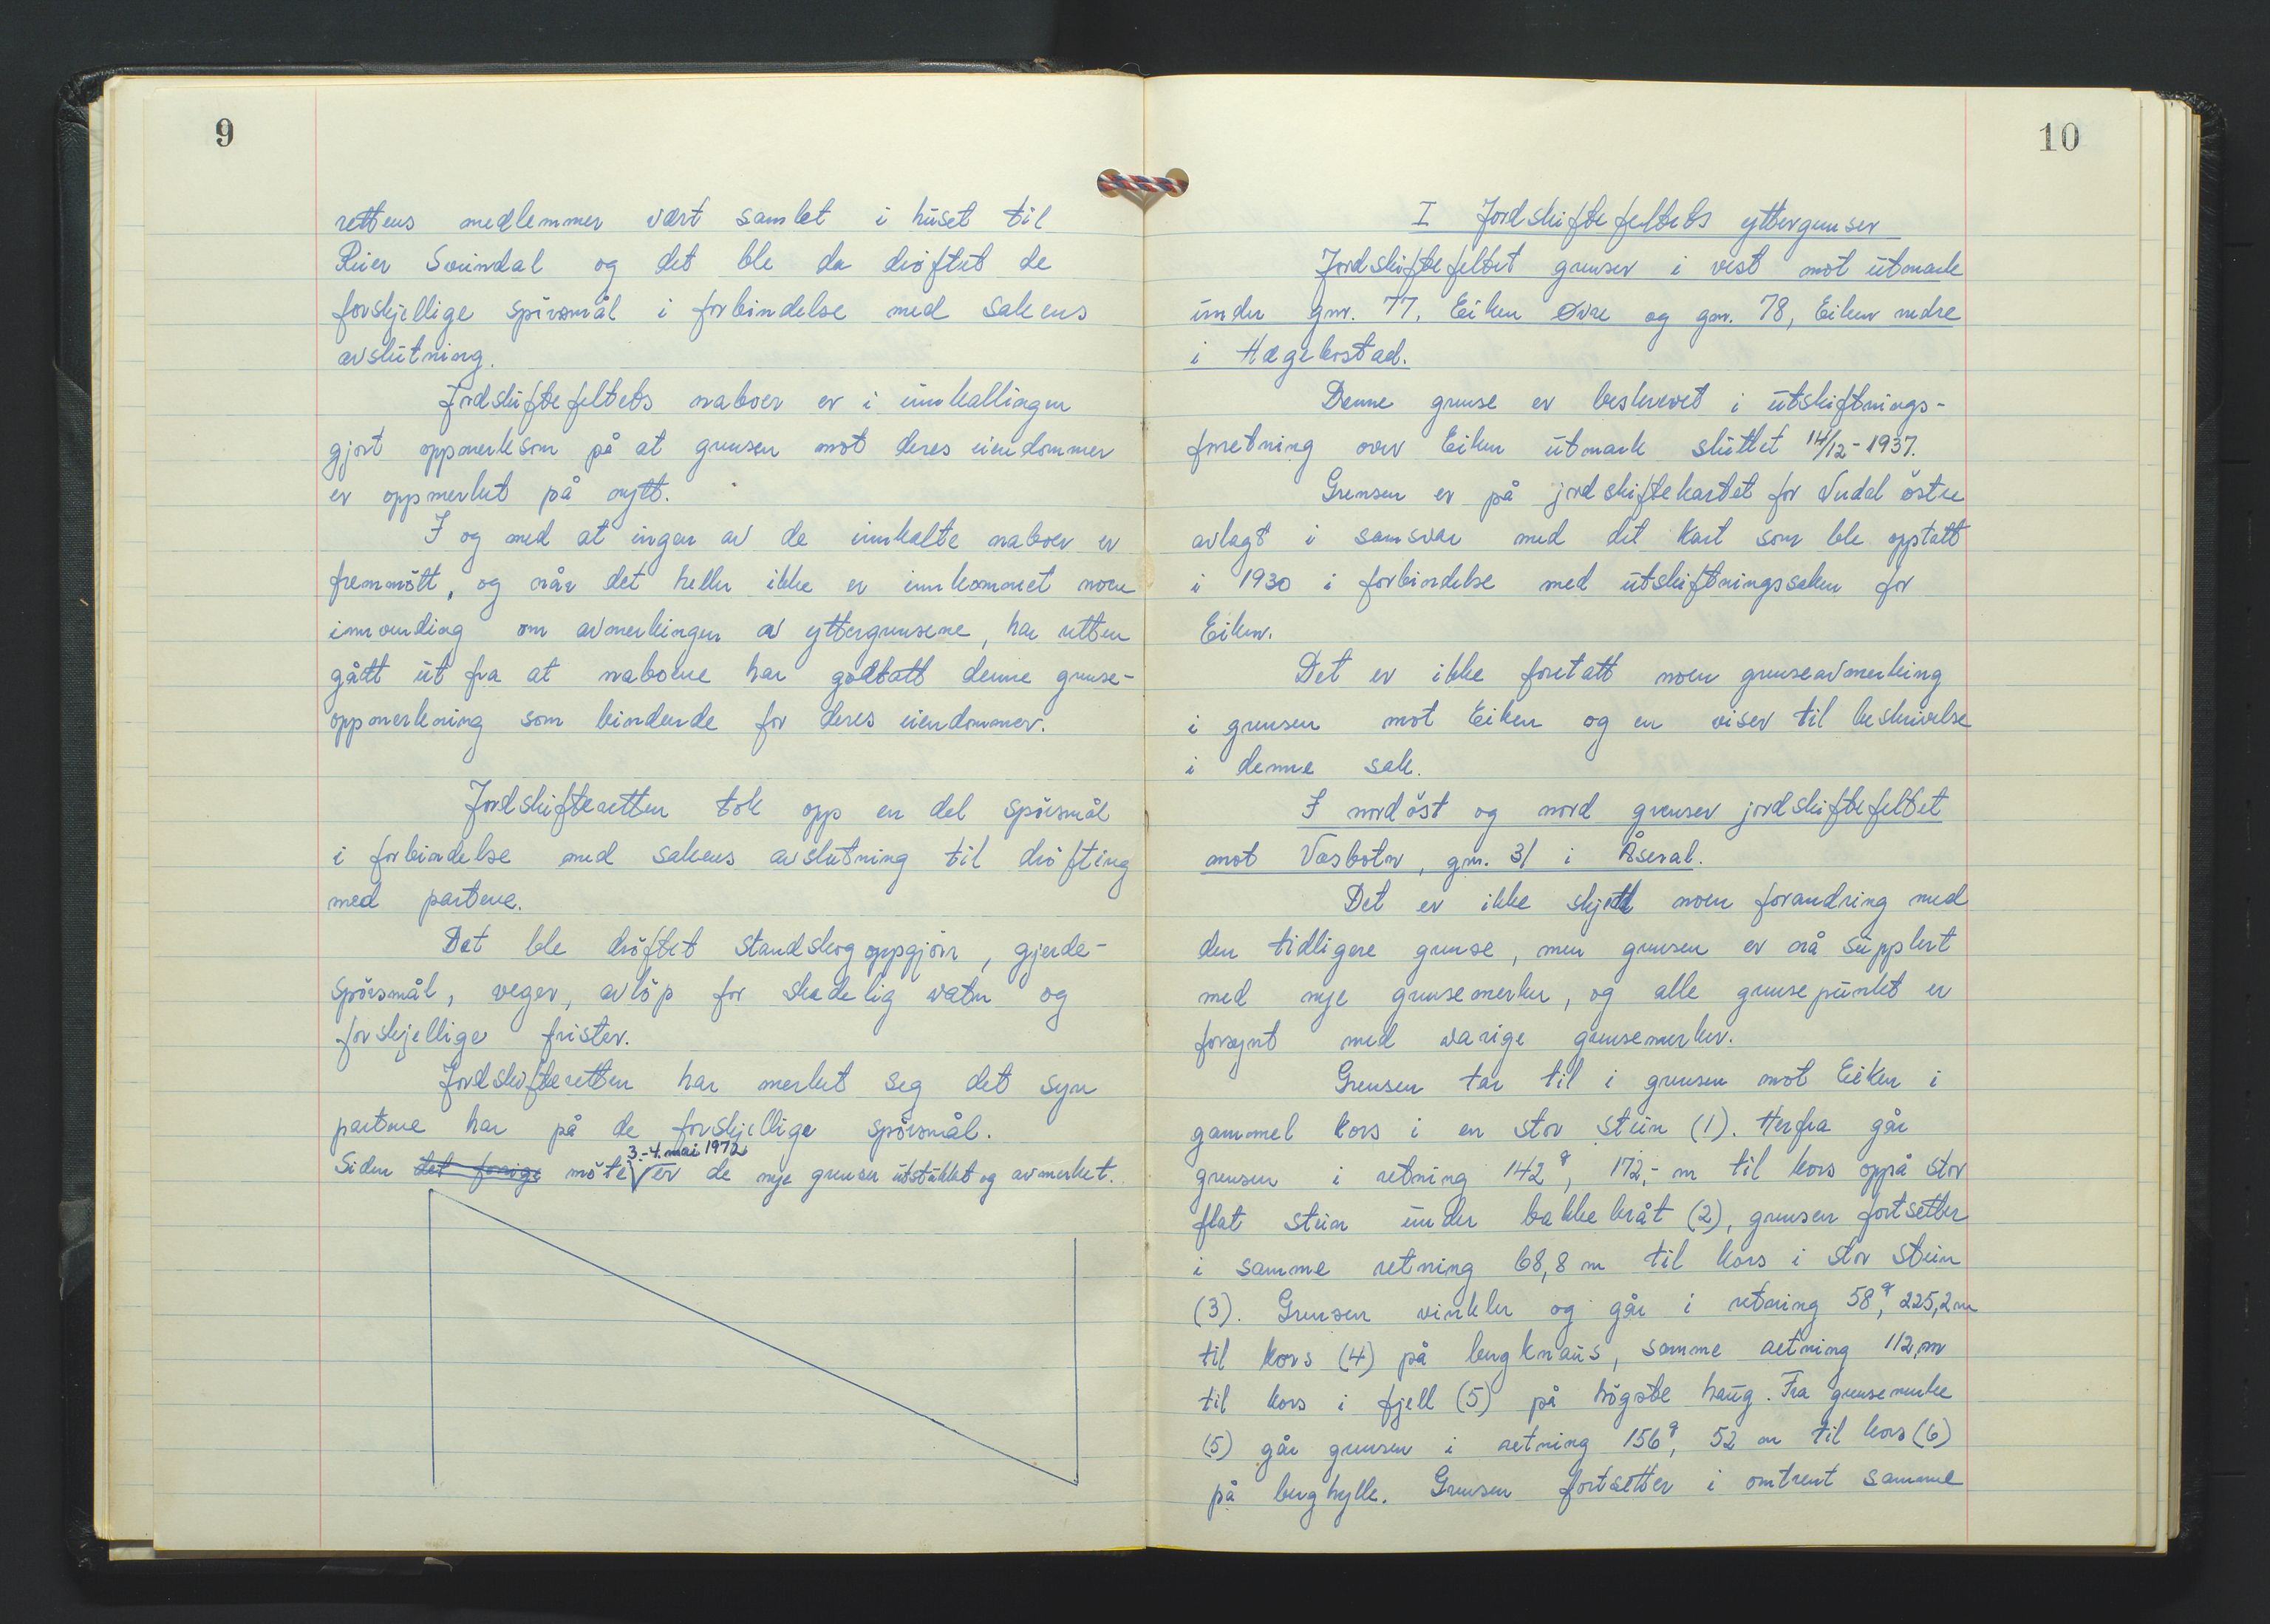 9
rettens medlemmer vært samlet i huset til
Reier Sveindal og det ble da drøftet de
forskjellige spørsmål i forbindelse med sakens
avslutning.
Jordskiftefeltets naboer er i innkallingen
gjort oppmerksom på at grensen mot deres eiendommer
er oppmerket på nytt.
I og med at ingen av de innkalte naboer er
fremmött, og når det heller ikke er innkommet noen
innvending om avmerkingen av yttergrensene, har retten
gått ut fra at naboene har godtatt denne grense-
oppmerkning som bindende for deres eiendommer.
Jordskifteretten tok opp en del spörsmål
i forbindelse med sakens avslutning til dröfting
med partene.
Det ble dröftet standskogoppgjör, gjerde-
spörsmål, veger, avlöp for skadelig vatn og
forskjellige frister.
Jordskifteretten har merket seg det syn
partene har på de forskjellige spörsmål.
3.-4. mai 1972
Siden det forige möte er de nye grenser utstukket og avmerket.
10
I Jordskiftefeltets yttergrenser
Jordskiftefeltet grenser i vest mot utmark
under gnr. 77, Eiken Øvre og gnr. 78, Eiken nedre
i Hægebostad.
Denne grense er beskrevet i utskiftnings-
forretning over Eiken utmark sluttet 14/12-1937.
Grensen er på jordskiftekartet for Verdal östre
avlagt i samsvar med det kart som ble opptatt
i 1930 i forbindelse med utskiftningssaken for
Eiken.
Det er ikke foretatt noen grenseavmerking
i grensen mot Eiken og en viser til beskrivelse
i denne sak.
I nordöst og nord grenser jordskiftefeltet
mot Vasbotn, gnr. 31 i Åseral.
Det er ikke skjedd noen forandring med
den tidligere grense, men grensen er nå supplert
med nye grensemerker, og alle grensepunkt er
forsynt med varige grensemerker.
Grensen tar til i grensen mot Eiken i
gammel kors i en stor stein (1). Herfra går
grensen i retning 142g, 172,- m til kors oppå stor
flat stein under bakkebråt (2), grensen fortsetter
i samme retning 68,8 m til kors i stor stein
(3). Grensen vinkler og går i retning 58g, 225,2 m
til kors (4) på bergknaus, samme retning 112,m
til kors i fjell (5) på högste haug. Fra grensemerke
(5) går grensen i retning 156g, 52 m til kors (6)
på berghylle. Grensen fortsetter i omtrent samme